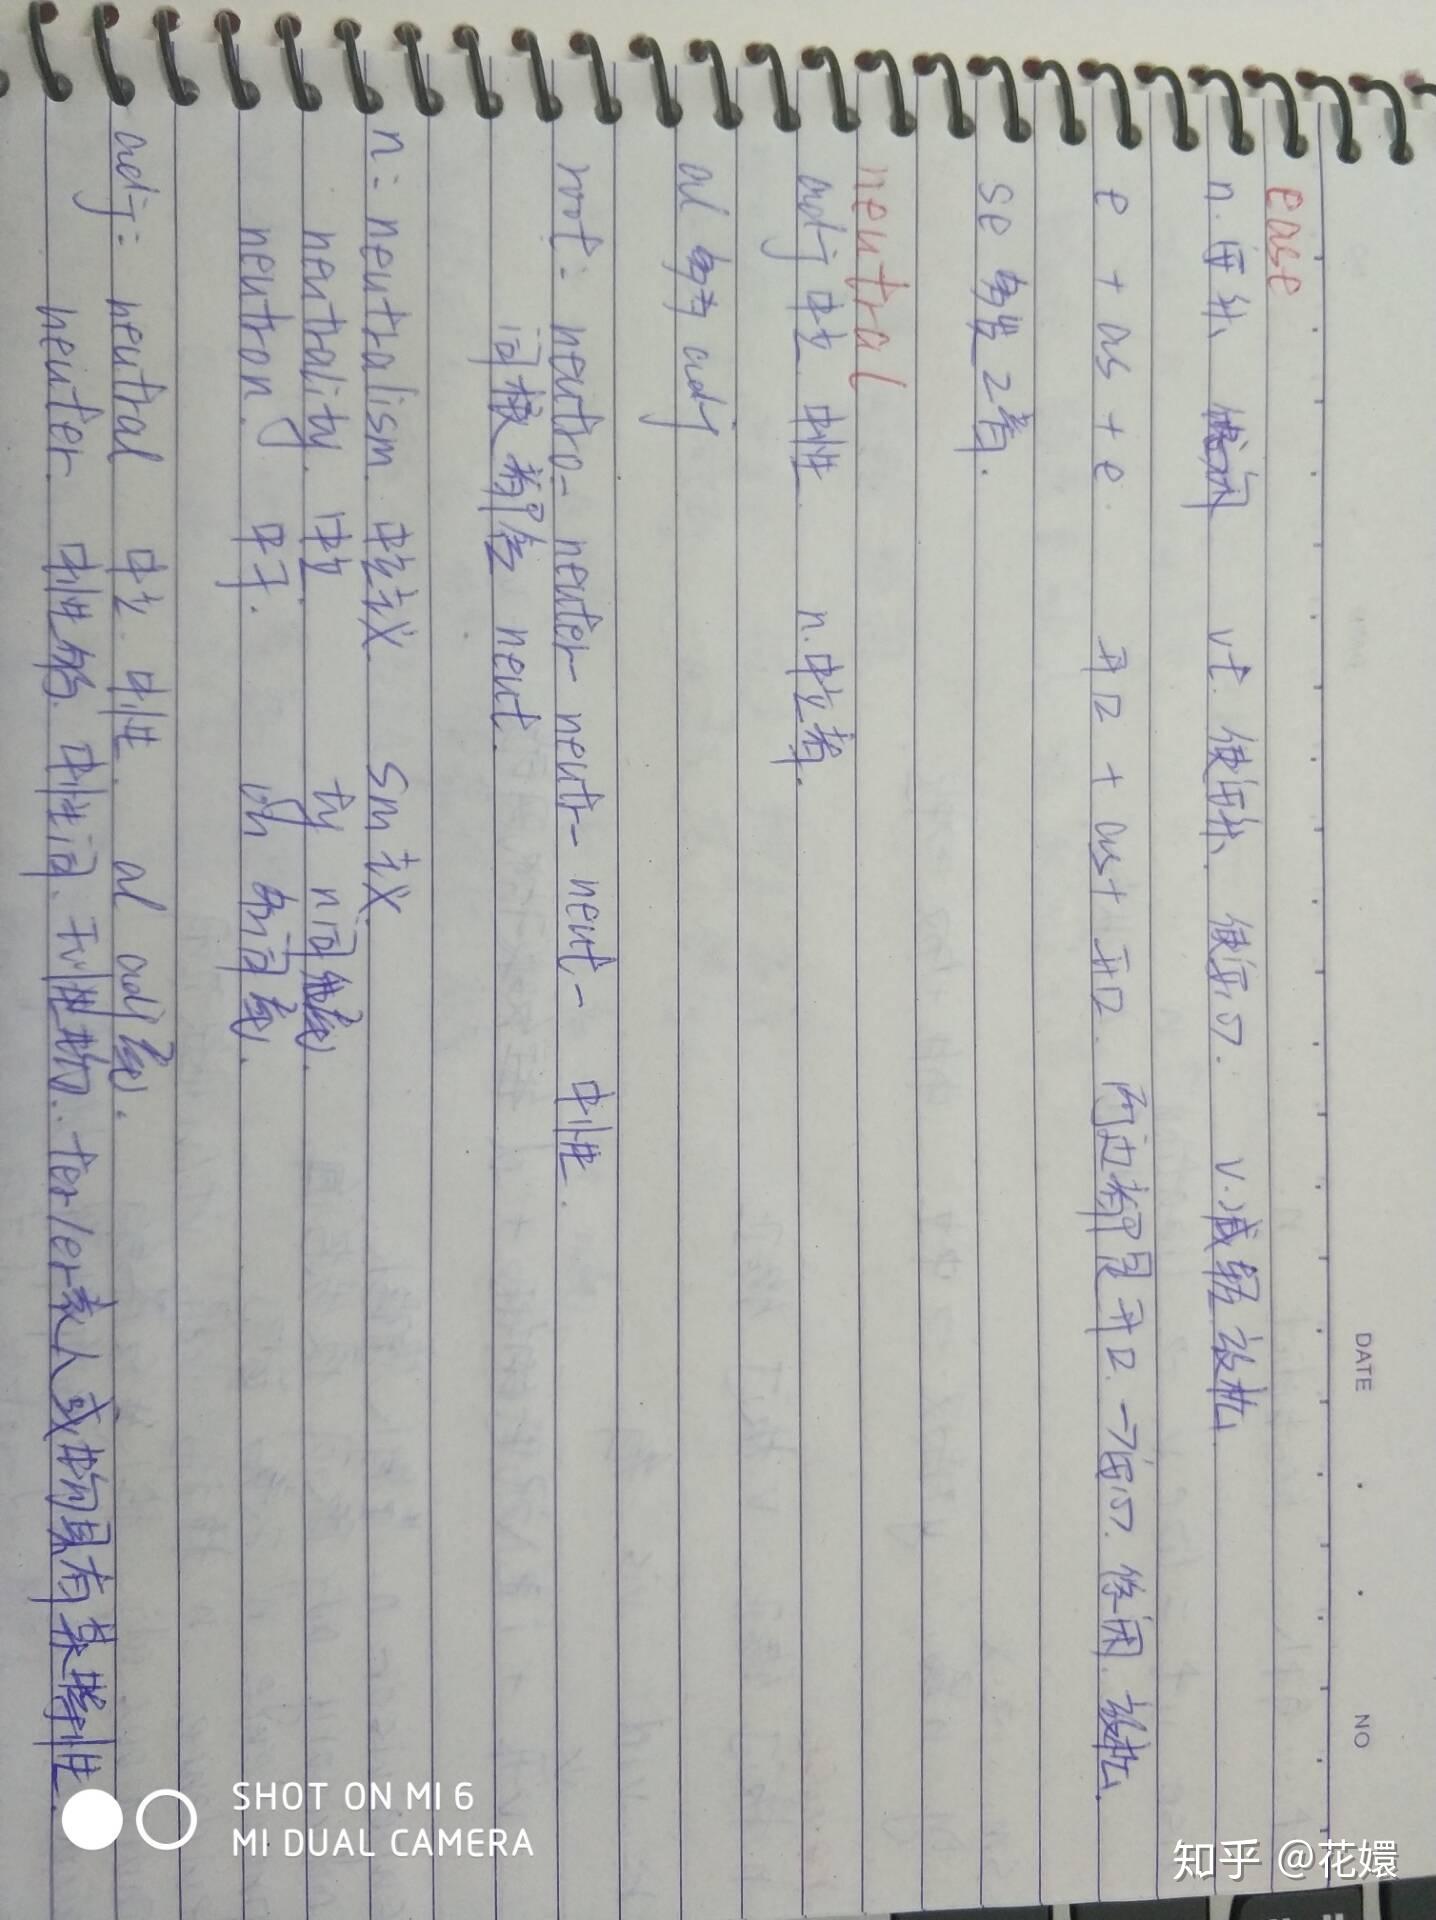 DATE . . NO
ease
n. 舒 vt. 使舒. 使 v.减轻 放松
e + as + e. 开口 + as + 开口. 两边都是开口. 一切 休闲. 放松.
se 发 2音.
neutral
adj 中立 中性. n. 中立者.
al 的 adj
root: neutro- neuter- neutr- neut- 中性.
词根都念 neut.
n: neutralism. 中立主义. sm 主义.
neutrality. 中立. ty n词缀.
neutron. 中子. on 名词缀.
adj: neutral 中立. 中性. al adj缀.
neuter. 中性的. 中性词. 无性动物. ter/er表人或物具有某特性.
SHOT ON MI 6
MI DUAL CAMERA
知乎 @花嬛